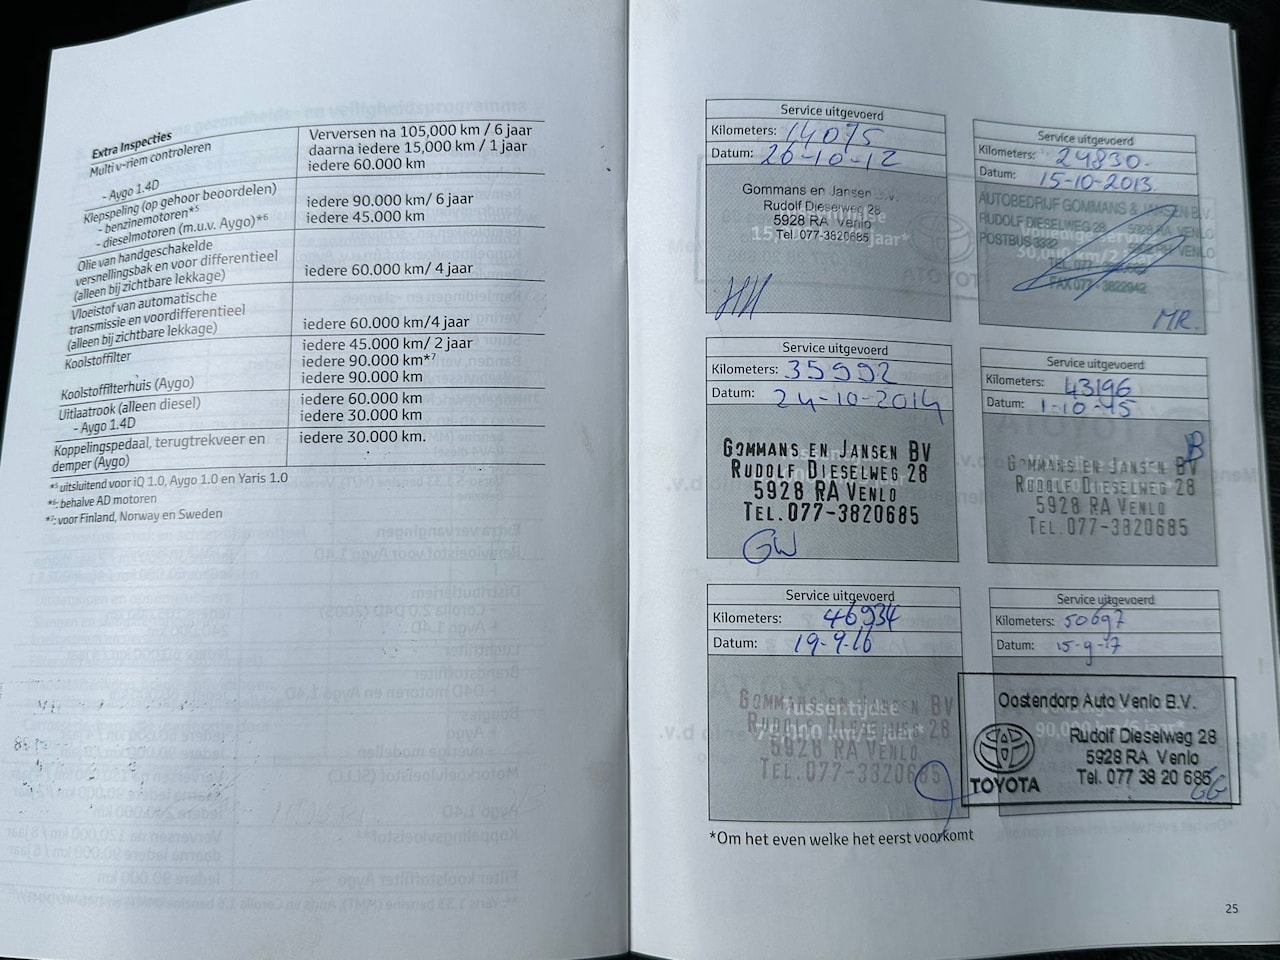 Extra Inspecties
Multi v-riem controleren
Verversen na 105,000 km / 6 jaar
daarna iedere 15,000 km / 1 jaar
- Aygo 1.4D
iedere 60.000 km
Klepspeling (op gehoor beoordelen)
- benzinemotoren*5
iedere 90.000 km/ 6 jaar
- dieselmotoren (m.u.v. Aygo)*6
iedere 45.000 km
Olie van handgeschakelde
versnellingsbak en voor differentieel
(alleen bij zichtbare lekkage)
iedere 60.000 km/ 4 jaar
Vloeistof van automatische
transmissie en voordifferentieel
(alleen bij zichtbare lekkage)
iedere 60.000 km/4 jaar
Koolstoffilter
iedere 45.000 km/ 2 jaar
iedere 90.000 km*7
Koolstoffilterhuis (Aygo)
iedere 90.000 km
Uitlaatrook (alleen diesel)
iedere 60.000 km
- Aygo 1.4D
iedere 30.000 km
Koppelingspedaal, terugtrekveer en
demper (Aygo)
iedere 30.000 km.
*5 uitsluitend voor iQ 1.0, Aygo 1.0 en Yaris 1.0
*6: behalve AD motoren
*7: voor Finland, Norway en Sweden
Service uitgevoerd
Kilometers: 14075
Datum: 26-10-12
Gommans en Jansen B.V.
Rudolf Dieselweg 28
5928 RA Venlo
Tel. 077-3820685
Service uitgevoerd
Kilometers: 24830.
Datum: 15-10-2013
AUTOBEDRIJF GOMMANS & JANSEN B.V.
RUDOLF DIESELWEG 28 5928 RA VENLO
POSTBUS 3332
30,000 km/2 jaar*
FAX 077 - 3822942
MR.
Service uitgevoerd
Kilometers: 35992
Datum: 24-10-2014
GOMMANS EN JANSEN BV
RUDOLF DIESELWEG 28
5928 RA VENLO
TEL. 077-3820685
GW
Service uitgevoerd
Kilometers: 43196
Datum: 1-10-15
B
GOMMANS EN JANSEN BV
RUDOLF DIESELWEG 28
5928 RA VENLO
TEL. 077-3820685
Service uitgevoerd
Kilometers: 46934
Datum: 19-9-16
GOMMANS EN JANSEN BV
Tussentijdse
RUDOLF DIESELWEG 28
75,000 km/5 jaar*
5928 RA VENLO
TEL. 077-3820685
Service uitgevoerd
Kilometers: 50697
Datum: 15-9-17
Oostendorp Auto Venlo B.V.
90,000 km/6 jaar*
Rudolf Dieselweg 28
5928 RA Venlo
Tel. 077 38 20 685
TOYOTA
GG
*Om het even welke het eerst voorkomt
25